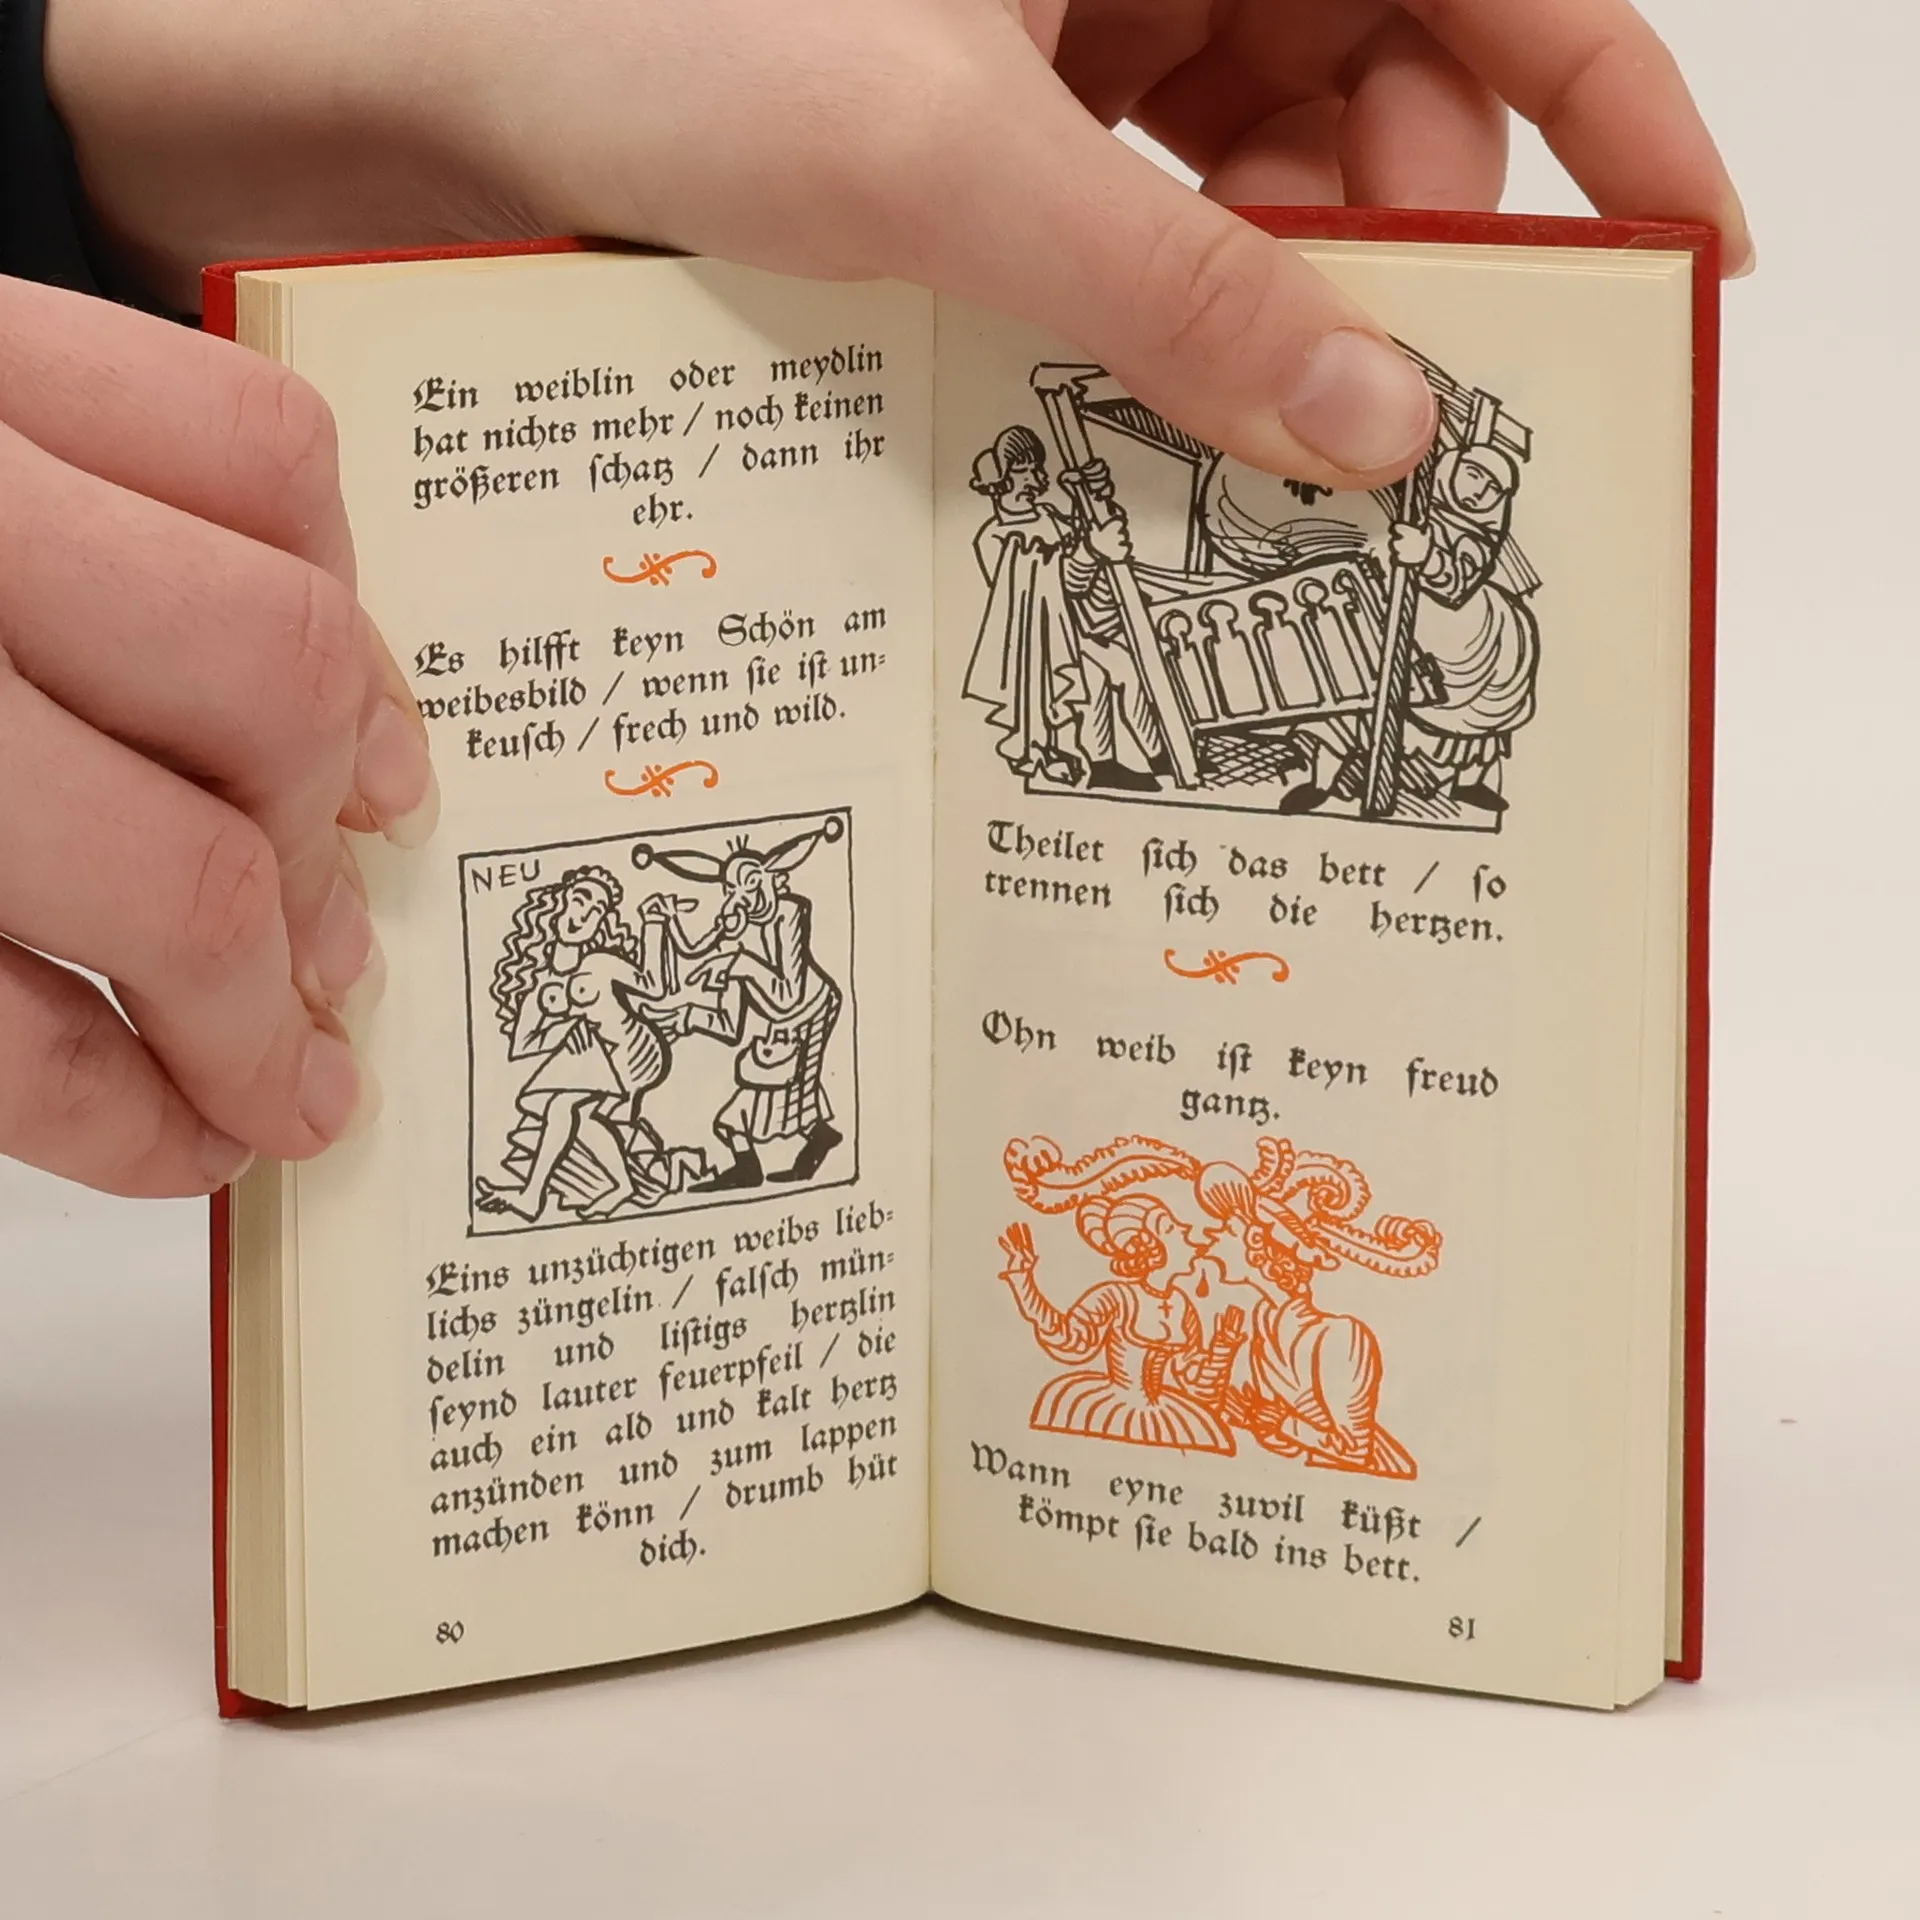 Ein weiblin oder meydlin
hat nichts mehr / noch keinen
größeren ſchatz / dann ihr
ehr.
Es hilfft keyn Schön am
weibesbild / wenn ſie iſt un⸗
keuſch / frech und wild.
NEU
Eins unzüchtigen weibs lieb⸗
lichs züngelin / falſch mün⸗
delin und liſtigs hertzlin
ſeynd lauter feuerpfeil / die
auch ein ald und kalt hertz
anzünden und zum lappen
machen könn / drumb hüt
dich.
80
Theilet ſich das bett / ſo
trennen ſich die hertzen.
Ohn weib iſt keyn freud
gantz.
Wann eyne zuvil küßt /
kömpt ſie bald ins bett.
81